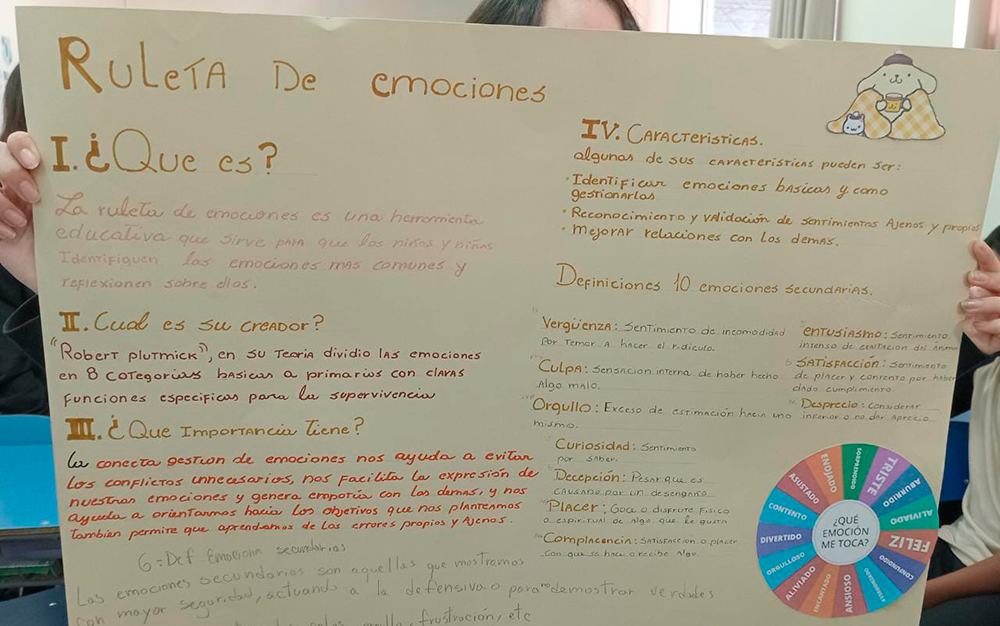 Ruleta De emociones
I. ¿Que es?
La ruleta de emociones es una herramienta
educativa que sirve para que los niños y niñas
Identifiquen las emociones mas comunes y
reflexionen sobre ellos.
II. Cual es su creador?
"Robert plutmick", en su teoria dividio las emociones
en 8 categorias basicas o primarios con claras
funciones especificas para la supervivencia
III. ¿Que Importancia tiene?
La conecta gestion de emociones nos ayuda a evitar
los conflictos unnecesarios, nos facilita la expresión de
nuestras emociones y genera empatia con los demas, y nos
ayuda a orientarnos hacia los objetivos que nos planteamos
tambien permite que aprendamos de los errores propios y Ajenos.
6=Def Emociona secundarias
Las emociones secundarias son aquellas que mostramos
con mayor seguridad, actuando a la defensiva o para demostrar verdades
frustración, etc
IV. Caracteristicas.
algunas de sus caracteristicas pueden ser:
• Identificar emociones basicas y como
gestionarlas
• Reconocimiento y validación de sentimientos Ajenos y propios
• Mejorar relaciones con los demas.
Definiciones 10 emociones secundarias.
Vergüenza: Sentimiento de incomodidad
por temor a hacer el ridiculo.
Culpa: Sensacion interna de haber hecho
Algo malo.
Orgullo: Exceso de estimación hacia uno
mismo.
Curiosidad: Sentimiento
por saber.
Decepción: Pesar que es
causado por un desengaño.
Placer: Goce o disfrute fisico
o espiritual de algo que le gusta
Complacencia: Satisfaccion o placer
con que se hace o recibe algo.
entusiasmo: Sentimiento
intenso de exaltacion del animo
Satisfacción: Sentimiento
de placer y contento por haber
dado cumplimiento.
Desprecio: Considerar
inferior o no dar aprecio
¿QUÉ
EMOCIÓN
ME TOCA?
SORPRENDIDO
TRISTE
ABURRIDO
ALIVIADO
FELIZ
CONFUNDIDO
AVERGONZADO
ANSIOSO
ENCANTADO
ALIVIADO
ORGULLOSO
DIVERTIDO
CONTENTO
ASUSTADO
ENOJADO